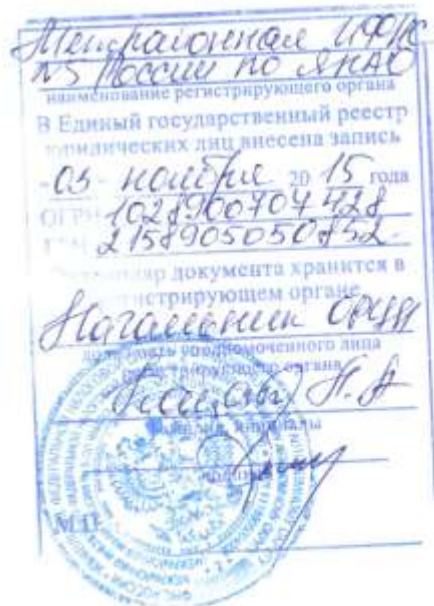 Межрайонная ИФНС
№5 России по ЯНАО
наименование регистрирующего органа
В Единый государственный реестр
юридических лиц внесена запись
- 03 - ноября 20 15 года
ОГРН 1028900704428
ГРН 2158905050852
Экземпляр документа хранится в
регистрирующем органе
Начальник
должность уполномоченного лица
регистрирующего органа
Н.А
фамилия, инициалы
подпись
М.П.